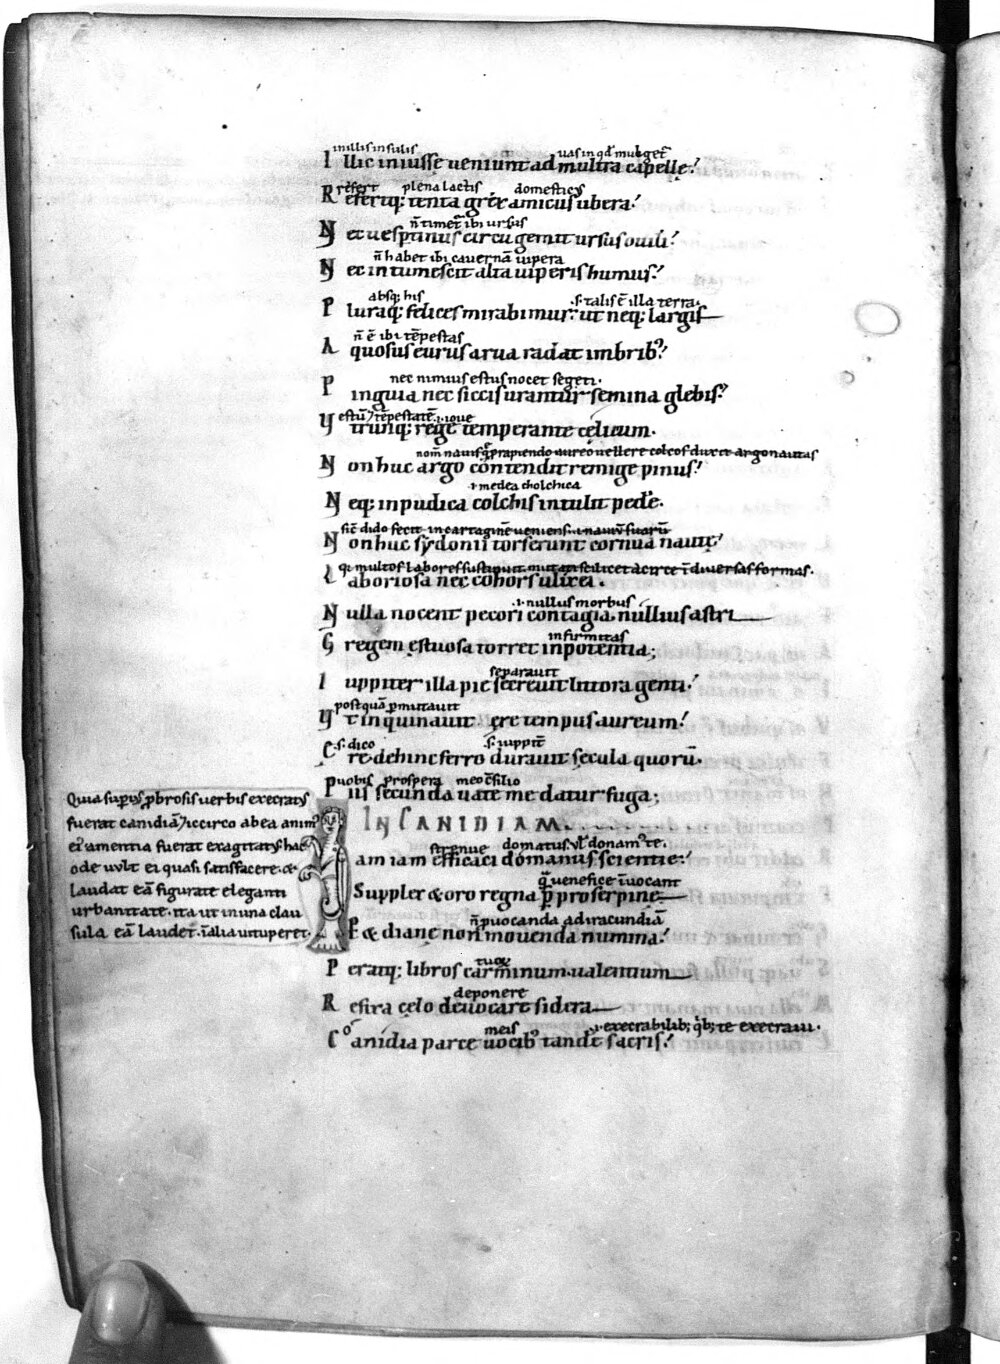 in illis insulis uas in qđ mulget᷒
Illic iniussę ueniunt ad multra capellę?
refert plena lactis domesticus
Refertq; tenta grex amicus ubera?
n̄ timet᷒ ibi ursus
Nec uespertinus circu gemit ursus ouili?
n̄ habet ibi cauernā uipera
Nec intumescit alta uiperis humus?
absq; his .s. talis ē illa terra.
Pluraq; felices mirabimur. ut neq; largis
n̄ ē ibi tēpestas
Aquosus eurus arua radat imbrib᷒?
nec nimius estus nocet segeti.
Pinguia nec siccis urantur semina glebis?
estū ⁊ tēpestatē .i. ioue
Vtrunq; rege temperante cęlicum.
nom̄ nauis q̨ rapiendo aureo uellere colcos duxit argonautas
Non huc argo contendit remige pinus?
.i. medea cholchica
Neq; inpudica colchis intulit pedē.
sic̄ dido fecit in cartaginē ueniens .i. nauiū suarū
Non huc sydonii torserunt cornua nautę?
qi multos labores sustinuit
Laboriosa nec cohors ulixei.
.i. nullus morbus
Nulla nocent pecori contagia, nullius astri
infirmitas
Gregem ęstuosa torret inpotentia;
separauit
Iuppiter illa pię secreuit littora genti?
postquā p̄mutauit
Vt inquinauit ęre tempus aureum?
.s. dico .s. iuppit̄
Cęre dehinc ferro durauit secula quorū.
uobis prospera meo c̄silio
Piis secunda uate me datur fuga;
IN CANIDIAM.
Quia sup̄ius p̄brosis uerbis execrat᷒
fuerat canidiā ⁊ iccirco ab ea anim᷒
ei᷒ amentia fuerat exagitat᷒. hac
ode uult ei quasi satisfacere. &
laudat eā figurate eleganti
urbanitate. ita ut in una clau
sula eā laudet. in alia uituperet.
strenue domatus. ul̄ donam᷒ te.
Iam iam efficaci do manus scientię?
q̨ uenefice īuocant
Supplex & oro regna p̄ proserpinę
n̄ p̄uocanda ad iracundiā
Per & dianę non mouenda numina?
tuoꝝ
Per atq; libros carminum ualentium
deponere
Refixa cęlo deuocare sidera
o meis .i. execrabilib; q̄b; te execraui.
Canidia parce uocib᷒ tandē sacris?